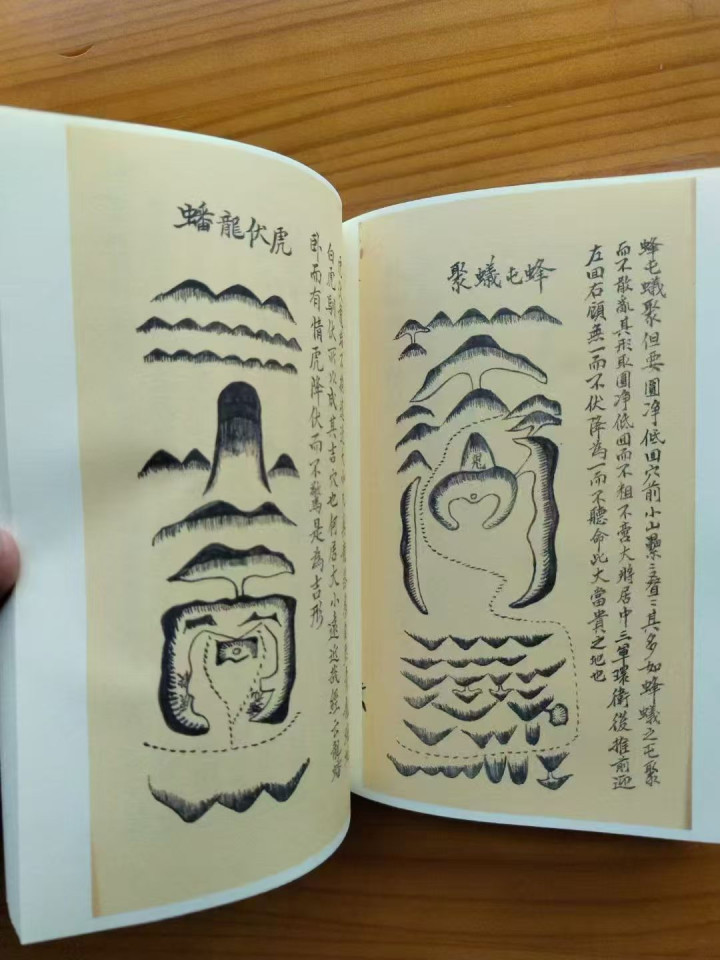 蜂屯蟻聚但要圓净低回穴前小山纍其多如蜂蟻之屯聚
而不散亂其形取圓净低回而不粗不蠢大將居中三軍環衛後推前迎
左回右顧無一而不伏降為一而不聽命此大富貴之地也
蜂屯蟻聚
虎伏龍蟠
白虎馴伏所以成其吉穴也何居大小遠近我之龍蟠
卧而有情虎降伏而不驚是為吉形